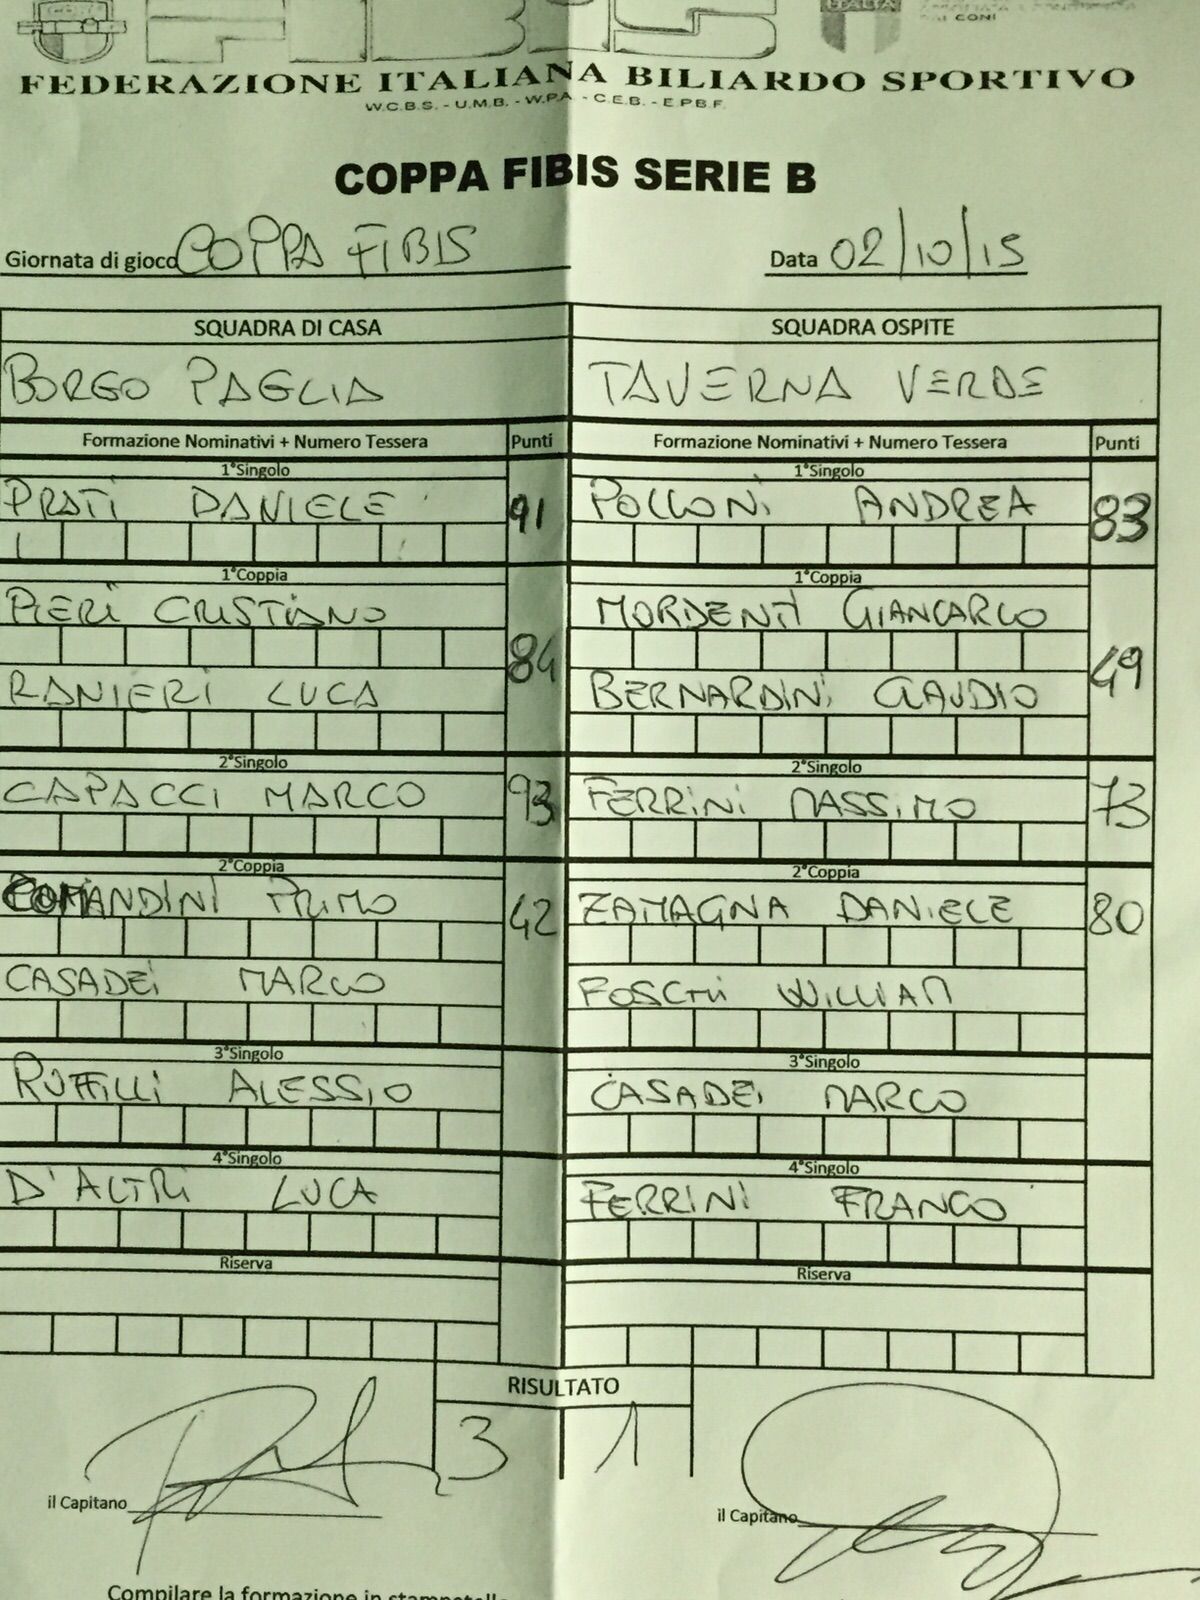 FIBIS
ITALIA
CONI
FEDERAZIONE ITALIANA BILIARDO SPORTIVO
W.C.B.S. - U.M.B. - W.P.A - C.E.B. - E.P.B.F.
COPPA FIBIS SERIE B
Giornata di gioco COPPA FIBIS Data 02/10/15
SQUADRA DI CASA SQUADRA OSPITE
BORGO PAGLIA TAVERNA VERDE
Formazione Nominativi + Numero Tessera Punti Formazione Nominativi + Numero Tessera Punti
1°Singolo 1°Singolo
PRATI DANIELE 91 POLLONI ANDREA 83
1°Coppia 1°Coppia
PIERI CRISTIANO 84 MORDENTI GIANCARLO 49
RANIERI LUCA BERNARDINI CLAUDIO
2°Singolo 2°Singolo
CAPACCI MARCO 93 FERRINI MASSIMO 73
2°Coppia 2°Coppia
COMANDINI PRIMO 42 ZAMAGNA DANIELE 80
CASADEI MARCO FOSCHI WILLIAM
3°Singolo 3°Singolo
RUFFILLI ALESSIO CASADEI MARCO
4°Singolo 4°Singolo
D'ALTRI LUCA FERRINI FRANCO
Riserva Riserva
RISULTATO
3 1
il Capitano il Capitano
Compilare la formazione in stampatello